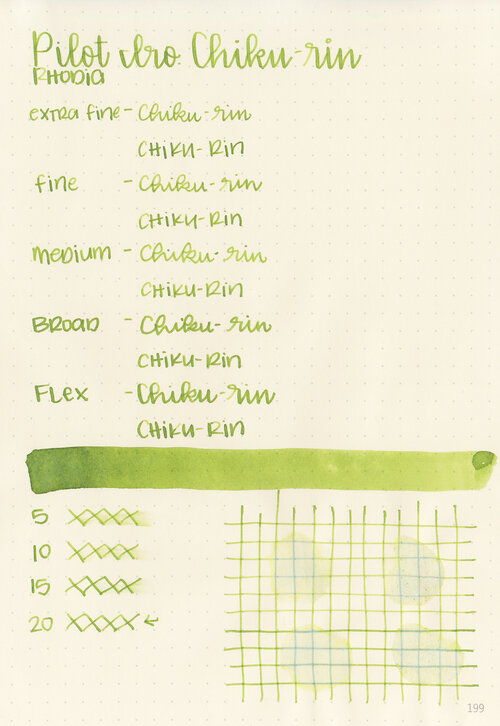 Pilot Iro Chiku-rin
RHODIA
extra fine - Chiku-rin
CHIKU-RIN
fine - Chiku-rin
CHIKU-RIN
medium - Chiku-rin
CHIKU-RIN
BROAD - Chiku-rin
CHIKU-RIN
FLEX - Chiku-rin
CHIKU-RIN
5 XXXX
10 XXXX
15 XXXX
20 XXXX ←
199